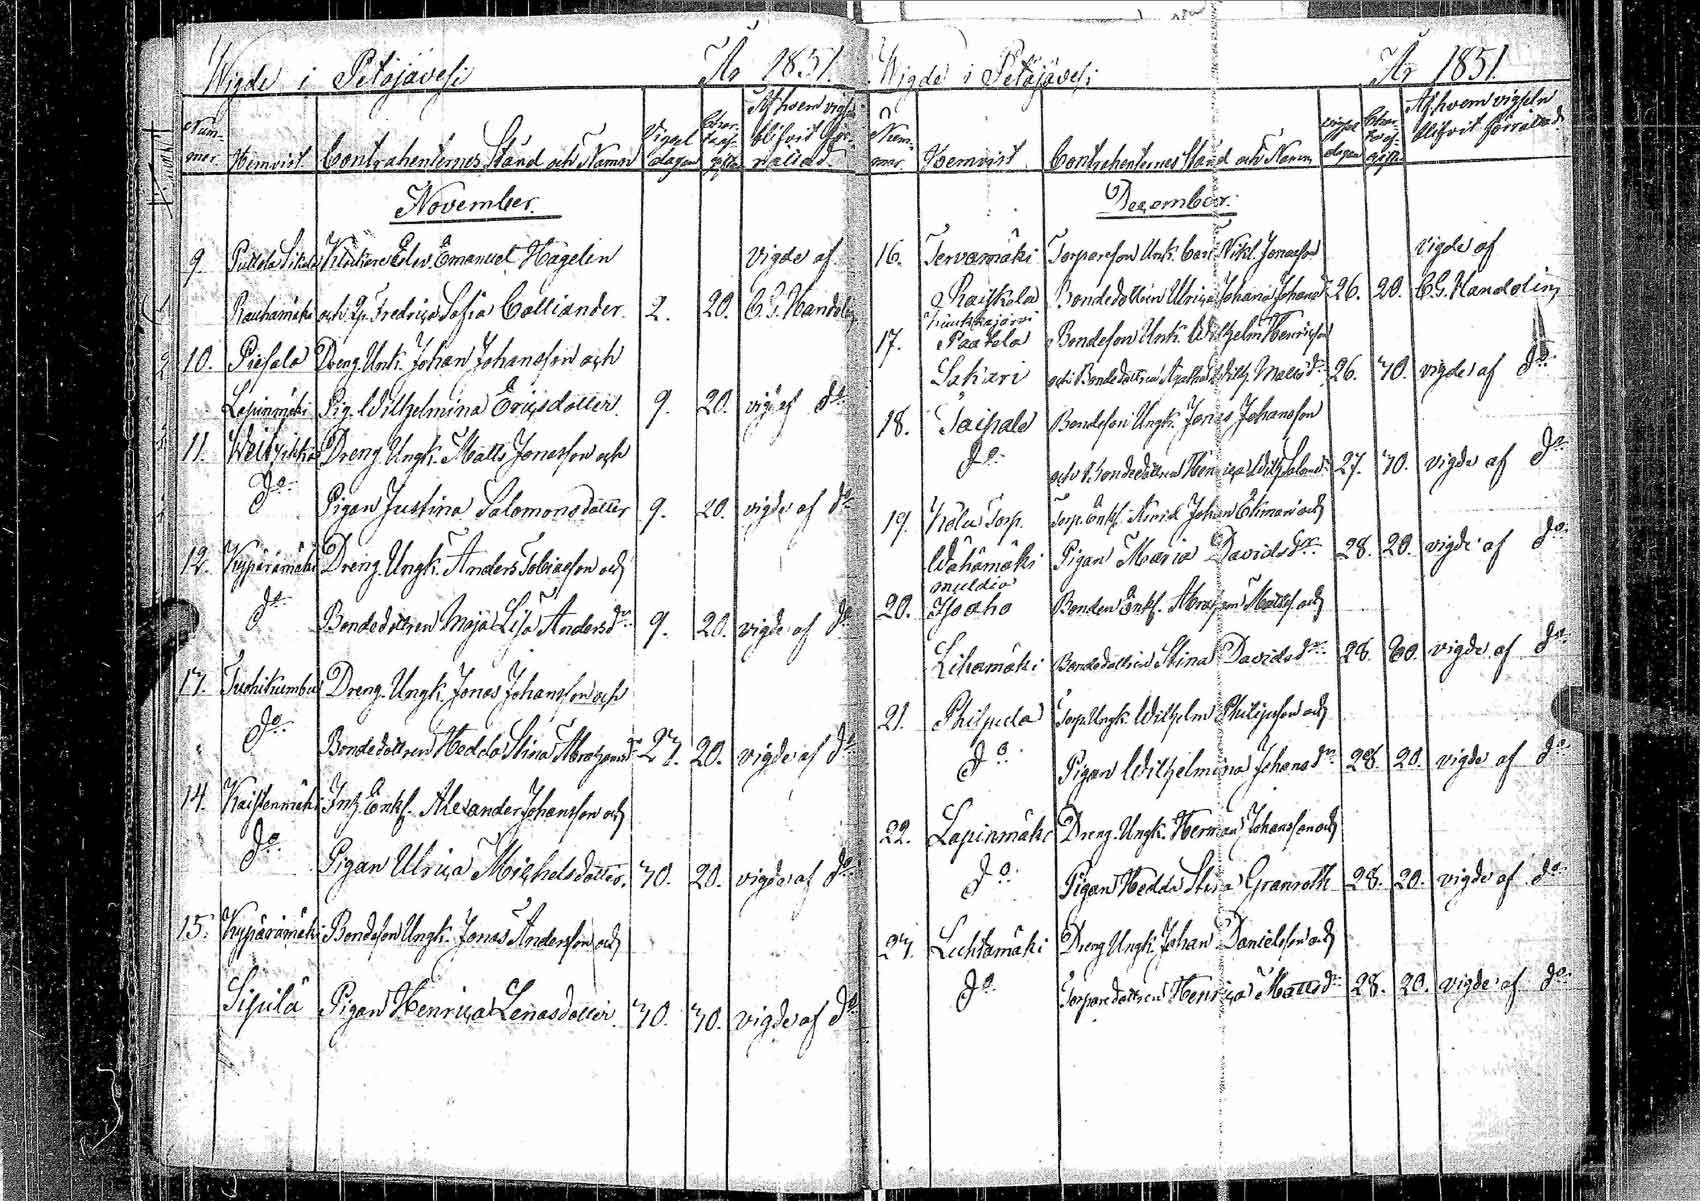 Wigde i Petäjävesi År 1851.
Num-
mer. Hemvist Contrahenternes Stånd och Namn Vigsel
dagen Char-
tæ af-
gift Af hvem vigseln
blifvit för-
rättad.
November.
9. Klockare Edv. Emanuel Hagelin vigde af
och Fredrica Sofia Calliander. 2. 20. C. G. Handolin
10. Piesala Dreng. Unk. Johan Johansson och
Lapinmäki Pig. Wilhelmina Ericsdotter. 9. 20. vig. af do
11. Dreng Ungk. Matts Jonasson och
do Pigan Justina Salomonsdotter 9. 20. vigde af do
12. Kypärämäki Dreng. Ungk. Anders Tobiasson och
do Bondedottren Maja Lisa Andersdr 9. 20. vigde af do
13. Dreng. Ungk. Jonas Johansson och
do Bondedottren Hedda Stina 23. 20. vigde af do
14. Enkl. Alexander Johansson och
do Pigan Ulrica Michelsdotter. 30. 20. vigde af do
15. Kypärämäki Bondeson Ungk. Jonas Andersson och
Sipilä Pigan Henrica Lenasdotter. 30. 30. vigde af do
Wigde i Petäjävesi År 1851.
Num-
mer. Hemvist Contrahenternes Stånd och Namn vigsel
dagen Char-
tæ af-
gift Af hvem vigseln
blifvit förrättad.
December.
16. Tervamäki Torpareson Unk. Carl Nikl. Jonasson vigde af
Raiskola Bondedottren Ulrica Johana Johansdr 26. 20. C. G. Handolin
17. Bondeson Unk. Wilhelm Henricson
Sakari och Bondedottren Agatha Wilh. Mattsdr 26. 30. vigde af do
18. Taipale Bondeson Ungk. Jonas Johansson
do och Bondedottren Henrica Wilh. 27. 30. vigde af do
19. Torp Torp. Enkl. Johan och
Wähämäki Pigan Maria Davidsdr. 28. 20. vigde af do
20. Isoaho Bonden Enkl. Mattss. och
Lihamäki Bondedottren Stina Davidsdr. 28. 60. vigde af do
21. Philpula Torp. Ungk. Wilhelm Philipsson och
do Pigan Wilhelmina Johansdr. 28. 20. vigde af do
22. Lapinmäki Dreng. Ungk. Herman Johansson och
do Pigan Hedda Stina Granroth 28. 20. vigde af do
23. Lechtamäki Dreng Ungk. Johan Danielsson och
do Torparedottren Henrica Mattsdr 28. 20. vigde af do